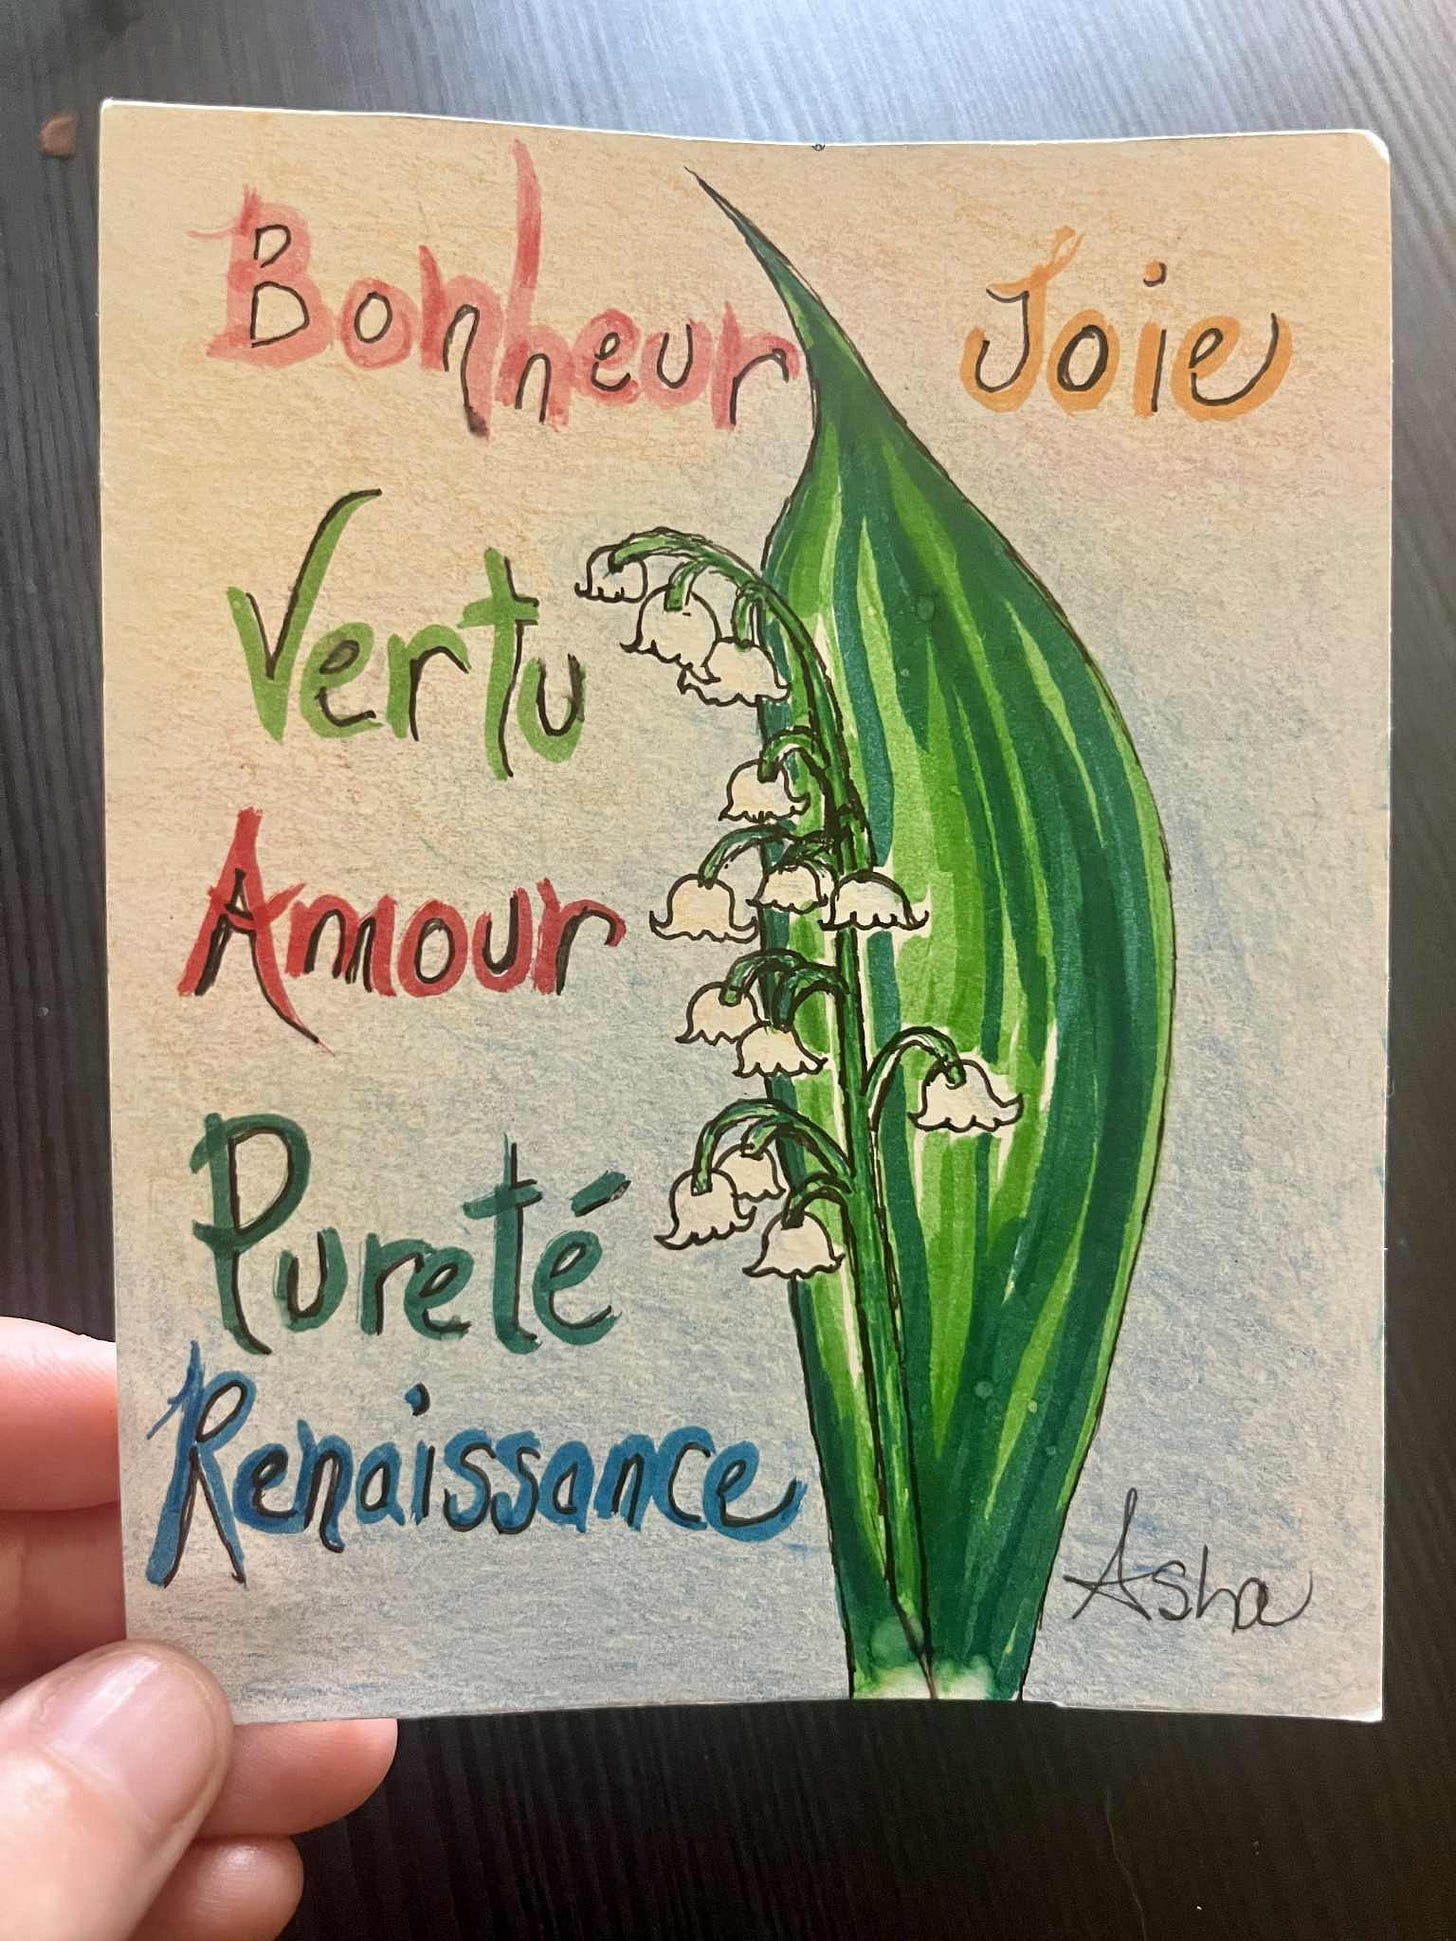 Bonheur Joie
Vertu
Amour
Pureté
Renaissance
Asha